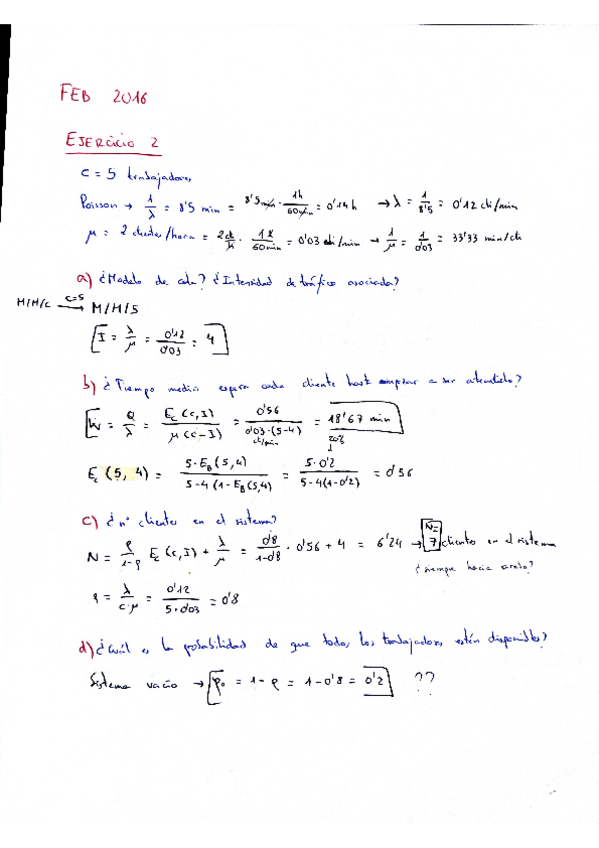 FEB 2016
EJERCICIO 2
C = 5 trabajadores
Poisson → 1/λ = 8'5 min = 8'5 min · 1h/60min = 0'14 h → λ = 1/8'5 = 0'12 cli/min
μ = 2 clientes/hora = 2 cli/h · 1h/60min = 0'03 cli/min → 1/μ = 1/0'03 = 33'33 min/cli
a) ¿Modelo de cola? ¿Intensidad de tráfico asociada?
M/M/c →(c=5) M/M/5
I = λ/μ = 0'12/0'03 = 4
b) ¿Tiempo medio espera cada cliente hasta empezar a ser atendido?
W = Q/λ = Ec(c,I)/μ(c-I) = 0'56/0'03·(5-4) = 18'67 min
cli/min
Ec(5,4) = 5·EB(5,4)/5-4(1-EB(5,4)) = 5·0'2/5-4(1-0'2) = 0'56
c) ¿nº clientes en el sistema?
N = ρ/1-ρ Ec(c,I) + λ/μ = 0'8/1-0'8 · 0'56 + 4 = 6'24 → N= 7 clientes en el sistema
¿siempre hacia arriba?
ρ = λ/c·μ = 0'12/5·0'03 = 0'8
d) ¿Cuál es la probabilidad de que todos los trabajadores estén disponibles?
Sistema vacío → p₀ = 1-ρ = 1-0'8 = 0'2 ??